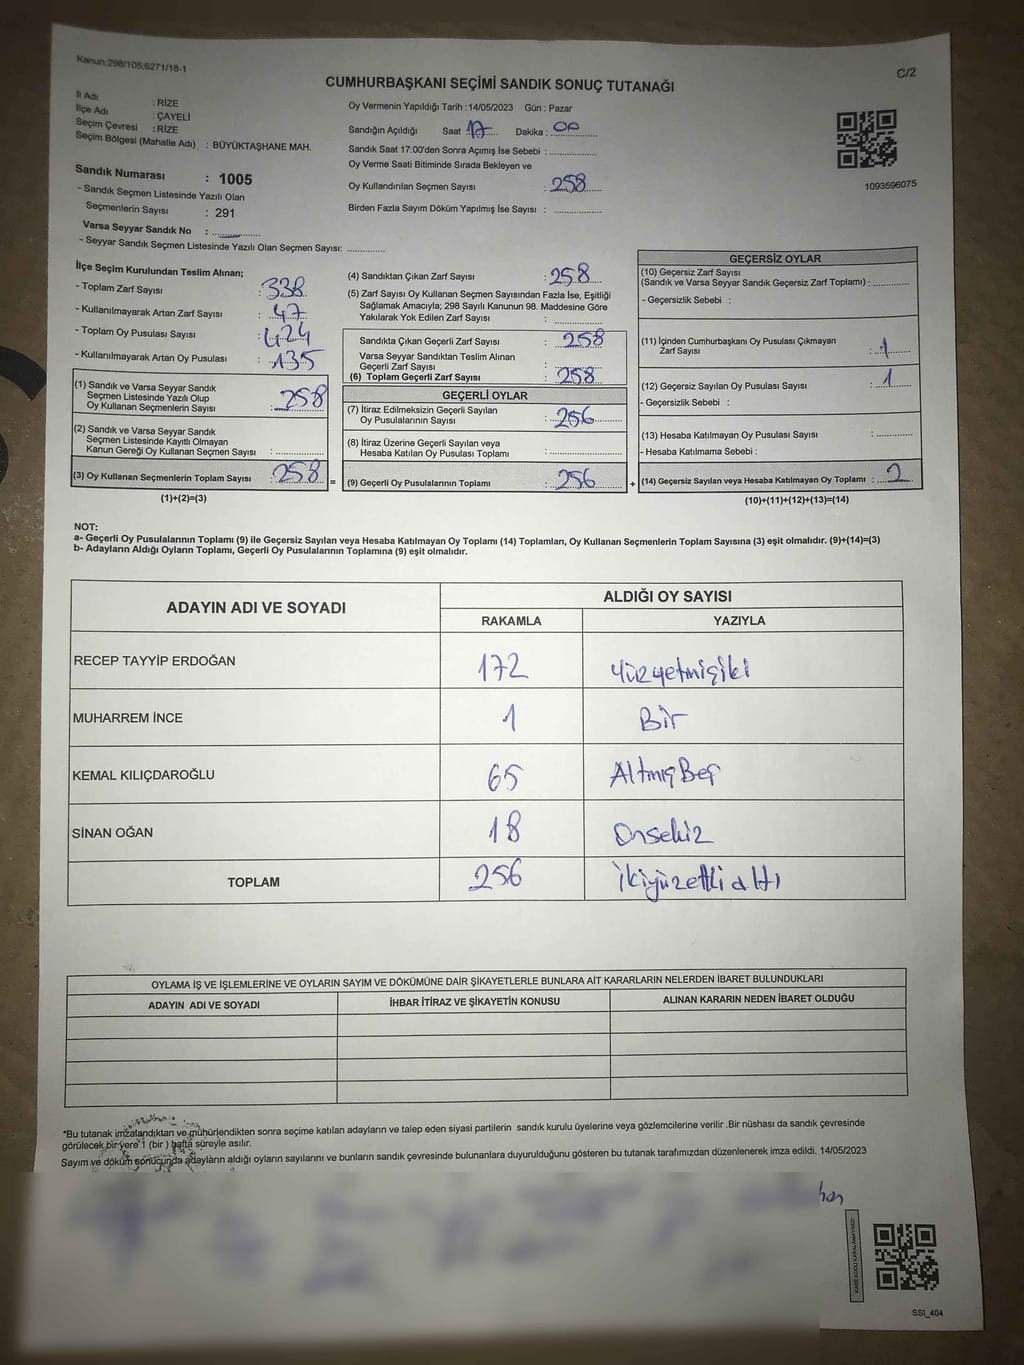 Kanun:298/105;6271/18-1
C/2
CUMHURBAŞKANI SEÇİMİ SANDIK SONUÇ TUTANAĞI
İl Adı : RİZE
İlçe Adı : ÇAYELİ
Seçim Çevresi : RİZE
Seçim Bölgesi (Mahalle Adı) : BÜYÜKTAŞHANE MAH.
Sandık Numarası : 1005
- Sandık Seçmen Listesinde Yazılı Olan
Seçmenlerin Sayısı : 291
Varsa Seyyar Sandık No :
- Seyyar Sandık Seçmen Listesinde Yazılı Olan Seçmen Sayısı:
Oy Vermenin Yapıldığı Tarih : 14/05/2023 Gün : Pazar
Sandığın Açıldığı Saat 17 Dakika : 00
Sandık Saat 17:00'den Sonra Açımış İse Sebebi :
Oy Verme Saati Bitiminde Sırada Bekleyen ve
Oy Kullandırılan Seçmen Sayısı : 258
Birden Fazla Sayım Döküm Yapılmış İse Sayısı :
1093596075
İlçe Seçim Kurulundan Teslim Alınan;
- Toplam Zarf Sayısı : 338
- Kullanılmayarak Artan Zarf Sayısı : 47
- Toplam Oy Pusulası Sayısı : 424
- Kullanılmayarak Artan Oy Pusulası : 135
(1) Sandık ve Varsa Seyyar Sandık
Seçmen Listesinde Yazılı Olup
Oy Kullanan Seçmenlerin Sayısı : 258
(2) Sandık ve Varsa Seyyar Sandık
Seçmen Listesinde Kayıtlı Olmayan
Kanun Gereği Oy Kullanan Seçmen Sayısı :
(3) Oy Kullanan Seçmenlerin Toplam Sayısı : 258
(1)+(2)=(3)
=
(4) Sandıktan Çıkan Zarf Sayısı : 258
(5) Zarf Sayısı Oy Kullanan Seçmen Sayısından Fazla İse, Eşitliği
Sağlamak Amacıyla; 298 Sayılı Kanunun 98. Maddesine Göre
Yakılarak Yok Edilen Zarf Sayısı :
Sandıkta Çıkan Geçerli Zarf Sayısı : 258
Varsa Seyyar Sandıktan Teslim Alınan
Geçerli Zarf Sayısı :
(6) Toplam Geçerli Zarf Sayısı : 258
GEÇERLİ OYLAR
(7) İtiraz Edilmeksizin Geçerli Sayılan
Oy Pusulalarının Sayısı : 256
(8) İtiraz Üzerine Geçerli Sayılan veya
Hesaba Katılan Oy Pusulası Toplamı :
(9) Geçerli Oy Pusulalarının Toplamı : 256
+
GEÇERSİZ OYLAR
(10) Geçersiz Zarf Sayısı
(Sandık ve Varsa Seyyar Sandık Geçersiz Zarf Toplamı) :
- Geçersizlik Sebebi :
(11) İçinden Cumhurbaşkanı Oy Pusulası Çıkmayan
Zarf Sayısı : 1
(12) Geçersiz Sayılan Oy Pusulası Sayısı : 1
- Geçersizlik Sebebi :
(13) Hesaba Katılmayan Oy Pusulası Sayısı :
- Hesaba Katılmama Sebebi :
(14) Geçersiz Sayılan veya Hesaba Katılmayan Oy Toplamı : 2
(10)+(11)+(12)+(13)=(14)
NOT:
a- Geçerli Oy Pusulalarının Toplamı (9) ile Geçersiz Sayılan veya Hesaba Katılmayan Oy Toplamı (14) Toplamları, Oy Kullanan Seçmenlerin Toplam Sayısına (3) eşit olmalıdır. (9)+(14)=(3)
b- Adayların Aldığı Oyların Toplamı, Geçerli Oy Pusulalarının Toplamına (9) eşit olmalıdır.
ADAYIN ADI VE SOYADI
ALDIĞI OY SAYISI
RAKAMLA YAZIYLA
RECEP TAYYİP ERDOĞAN 172 Yüzyetmişiki
MUHARREM İNCE 1 Bir
KEMAL KILIÇDAROĞLU 65 AltmışBeş
SİNAN OĞAN 18 Onsekiz
TOPLAM 256 İkiyüzellialtı
OYLAMA İŞ VE İŞLEMLERİNE VE OYLARIN SAYIM VE DÖKÜMÜNE DAİR ŞİKAYETLERLE BUNLARA AİT KARARLARIN NELERDEN İBARET BULUNDUKLARI
ADAYIN ADI VE SOYADI İHBAR İTİRAZ VE ŞİKAYETİN KONUSU ALINAN KARARIN NEDEN İBARET OLDUĞU
*Bu tutanak imzalandıktan ve mühürlendikten sonra seçime katılan adayların ve talep eden siyasi partilerin sandık kurulu üyelerine veya gözlemcilerine verilir .Bir nüshası da sandık çevresinde
görülecek bir yere 1 (bir ) hafta süreyle asılır.
Sayım ve döküm sonucunda adayların aldığı oyların sayılarını ve bunların sandık çevresinde bulunanlara duyurulduğunu gösteren bu tutanak tarafımızdan düzenlenerek imza edildi. 14/05/2023
SSI_404